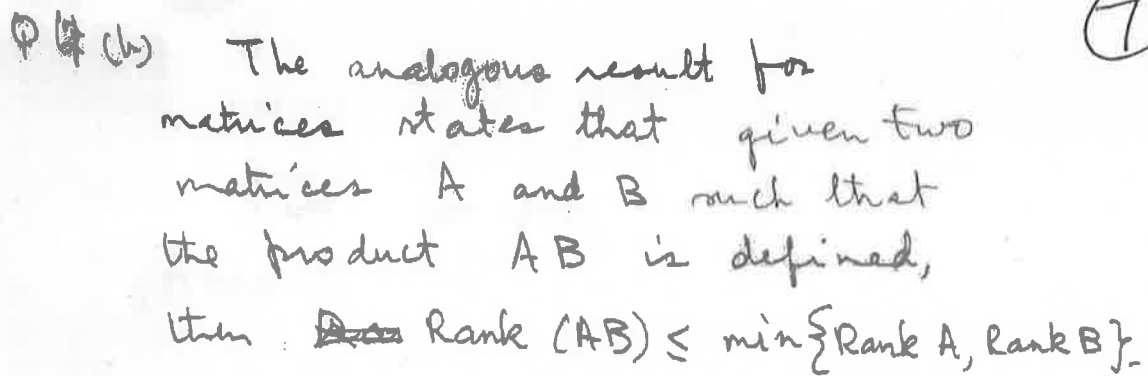 7
Q 4 (b) The analogous result for
matrices states that given two
matrices A and B such that
the product AB is defined,
then Rank (AB) ≤ min{Rank A, Rank B}.